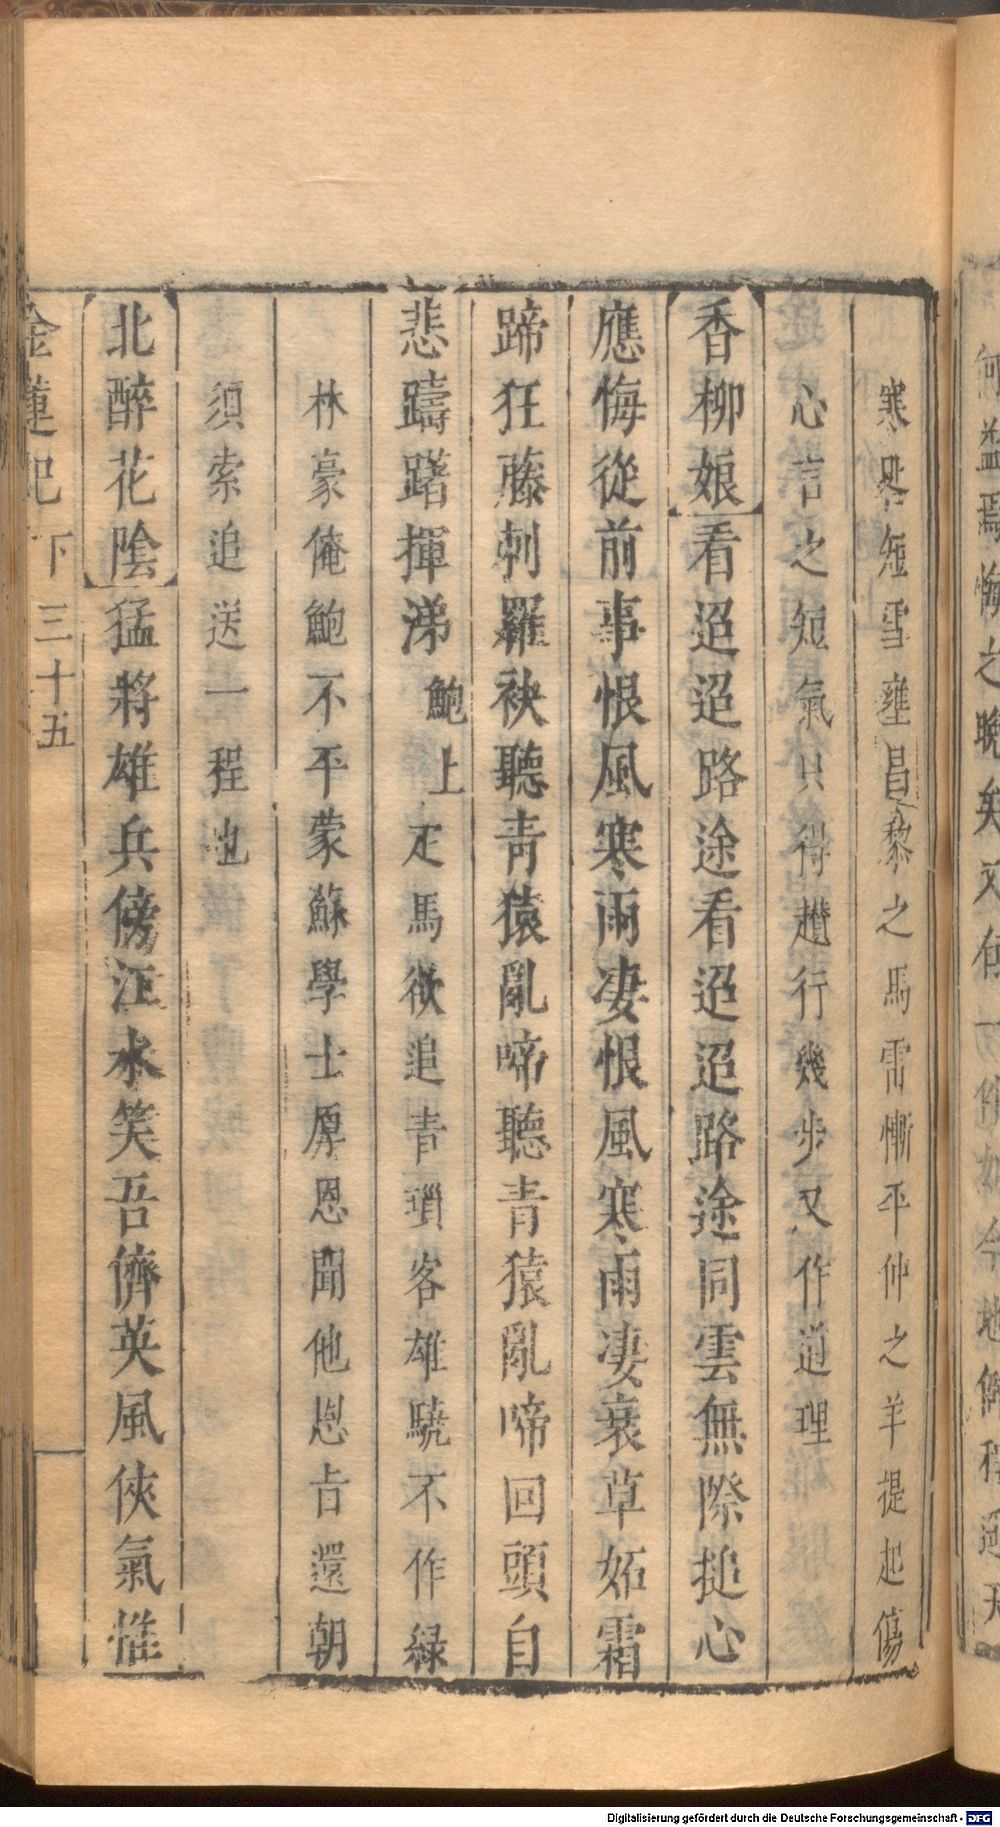 寒咎短雪壅昌黎之馬雷慚平仲之羊提起傷
心言之短氣只得趲行幾步又作道理
香柳娘看迢迢路途看迢迢路途同雲無際搥心
應悔從前事恨風寒雨凄恨風寒雨凄衰草妬霜
蹄狂藤刺羅袂聽青猿亂啼聽青猿亂啼回頭自
悲躊躇揮涕 鮑上 走馬欲追青瑣客雄驍不作綠
林豪俺鮑不平蒙蘇學士厚恩聞他恩㫖還朝
須索追送一程也
北醉花陰猛將雄兵傍江水笑吾儕英風俠氣惟
金蓮記 下 三十五
何益焉悔之晚矣又
今
Digitalisierung gefördert durch die Deutsche Forschungsgemeinschaft - DFG